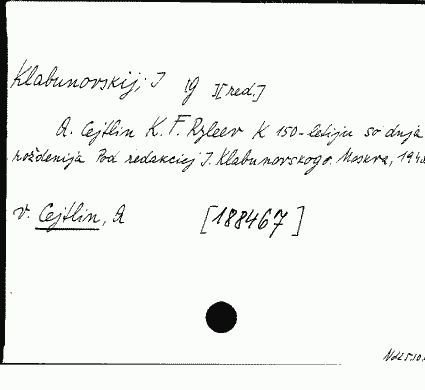 Klabunovskij, I [red.]
A. Cejtlin K. F. Ryleev K 150-letiju so dnja
roždenija Pod redakciej I. Klabunovskogo. Moskva, 194
v. Cejtlin, A [188467]